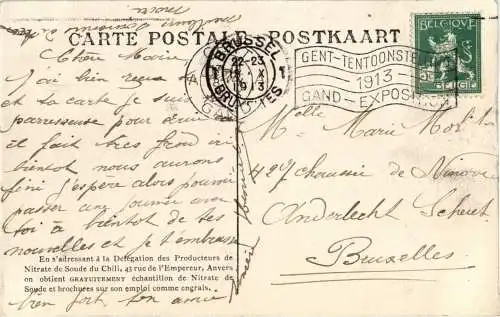 CARTE POSTALE - POSTKAART
BRUSSEL
22-23
X
1913
BRUXELLES
GENT-TENTOONSTELLING
1913
GAND-EXPOSITION
BELGIQUE
5
BELGIË
Chère Marie
J'ai bien reçu ta
et ta carte je suis
paresseuse pour écrire
il fait très froid ici
bientôt nous aurons
fini j'espère alors pouvoir
passer une journée avec
toi à bientôt de tes
nouvelles et je t'embrasse
bien fort ton amie
En s'adressant à la Délégation des Producteurs de
Nitrate de Soude du Chili, 43 rue de l'Empereur, Anvers
on obtient GRATUITEMENT échantillon de Nitrate de
Soude et brochures sur son emploi comme engrais.
Mlle Marie
427 chaussée de Ninove
Anderlecht Scheut
Bruxelles